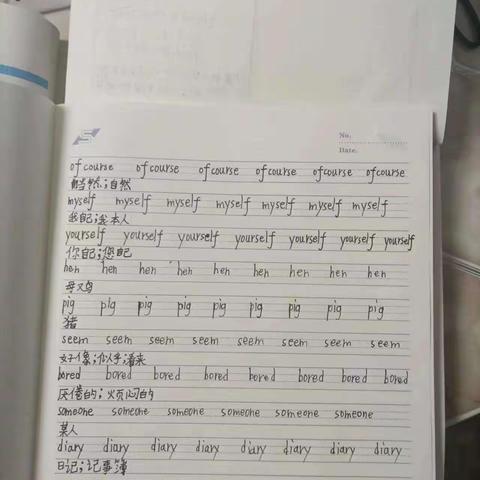 No.
Date.
of course of course of course of course of course of course
当然;自然
myself myself myself myself myself myself myself
我自己;我本人
yourself yourself yourself yourself yourself yourself yourself
你自己;您自己
hen hen hen hen hen hen hen hen hen
母鸡
pig pig pig pig pig pig pig pig pig
猪
seem seem seem seem seem seem seem seem
好像;似乎;看来
bored bored bored bored bored bored bored bored
厌倦的;烦闷的
someone someone someone someone someone someone
某人
diary diary diary diary diary diary diary diary
日记;记事簿